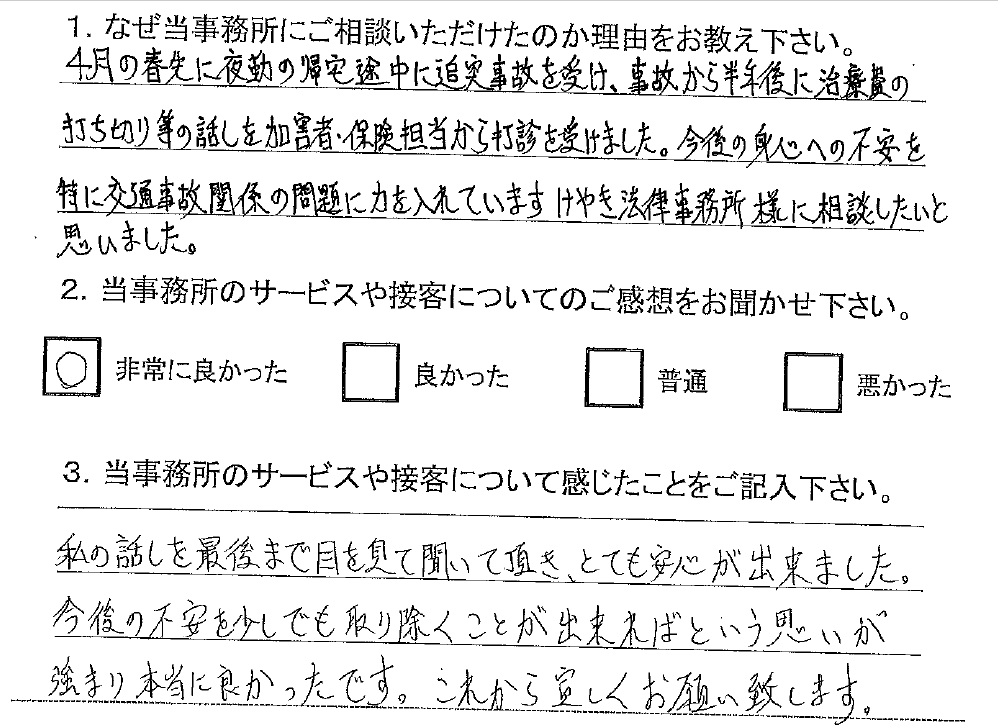 1. なぜ当事務所にご相談いただけたのか理由をお教え下さい。
4月の春先に夜勤の帰宅途中に追突事故を受け、事故から半年後に治療費の
打ち切り等の話しを加害者・保険担当から打診を受けました。今後の身心への不安を
特に交通事故関係の問題に力を入れていますけやき法律事務所様に相談したいと
思いました。
2. 当事務所のサービスや接客についてのご感想をお聞かせ下さい。
○ 非常に良かった 良かった 普通 悪かった
3. 当事務所のサービスや接客について感じたことをご記入下さい。
私の話しを最後まで目を見て聞いて頂き、とても安心が出来ました。
今後の不安を少しでも取り除くことが出来ればという思いが
強まり本当に良かったです。これから宜しくお願い致します。